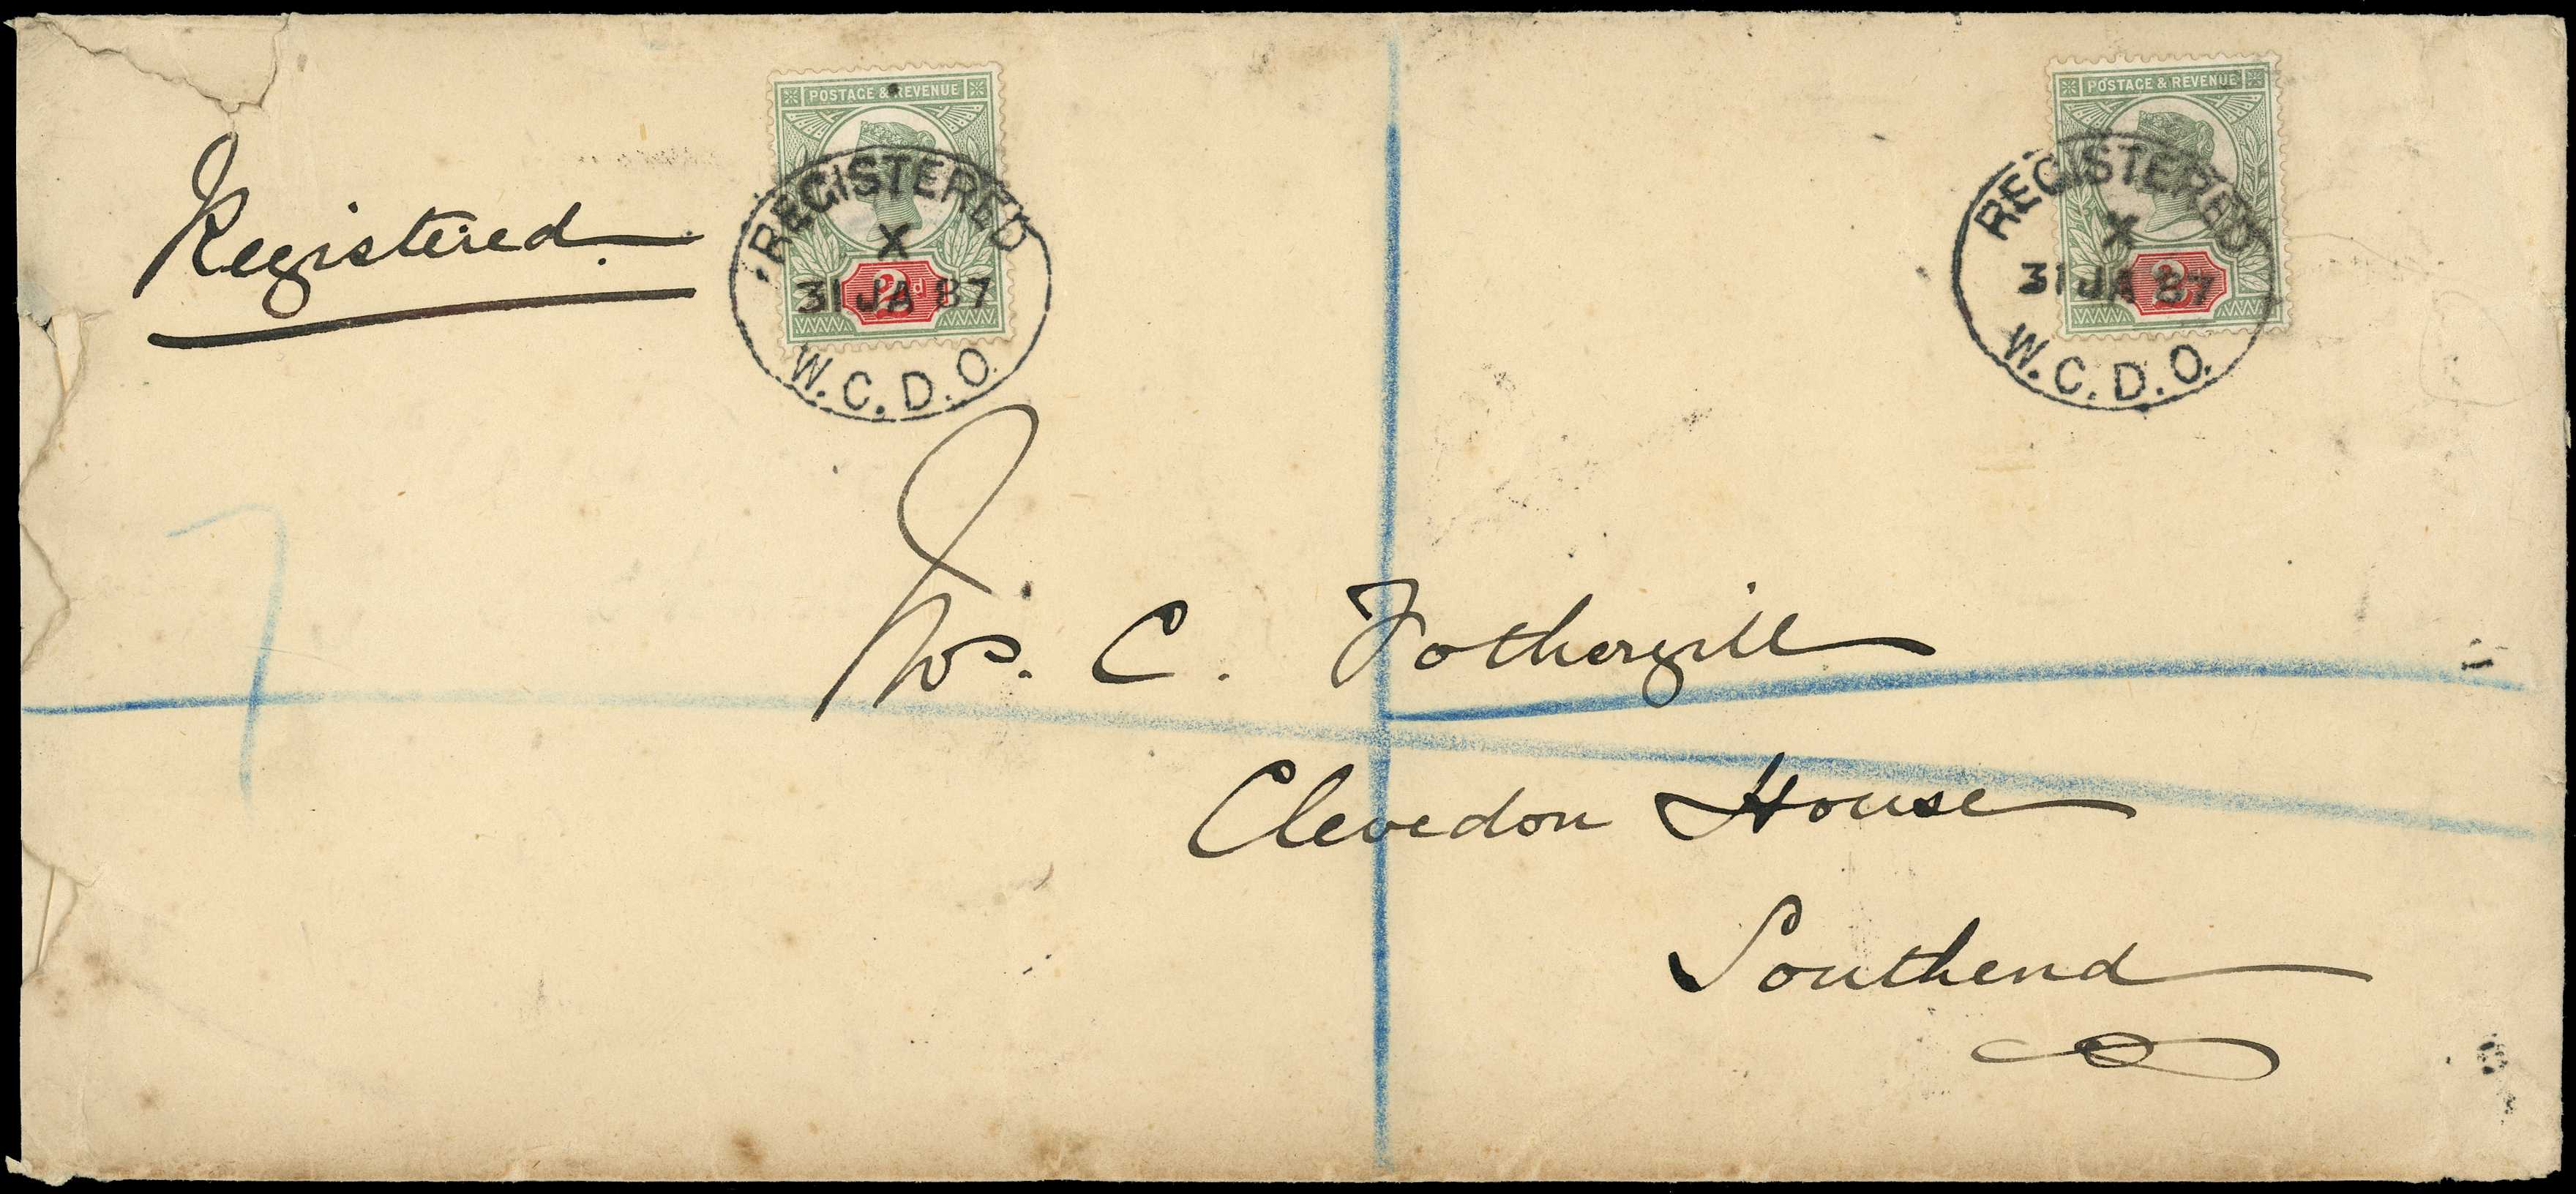 POSTAGE & REVENUE
2d
REGISTERED
X
31 JA 87
W.C.D.O.
POSTAGE & REVENUE
2d
REGISTERED
X
31 JA 87
W.C.D.O.
Registered.
C. Fothergill
Clevedon House
Southend